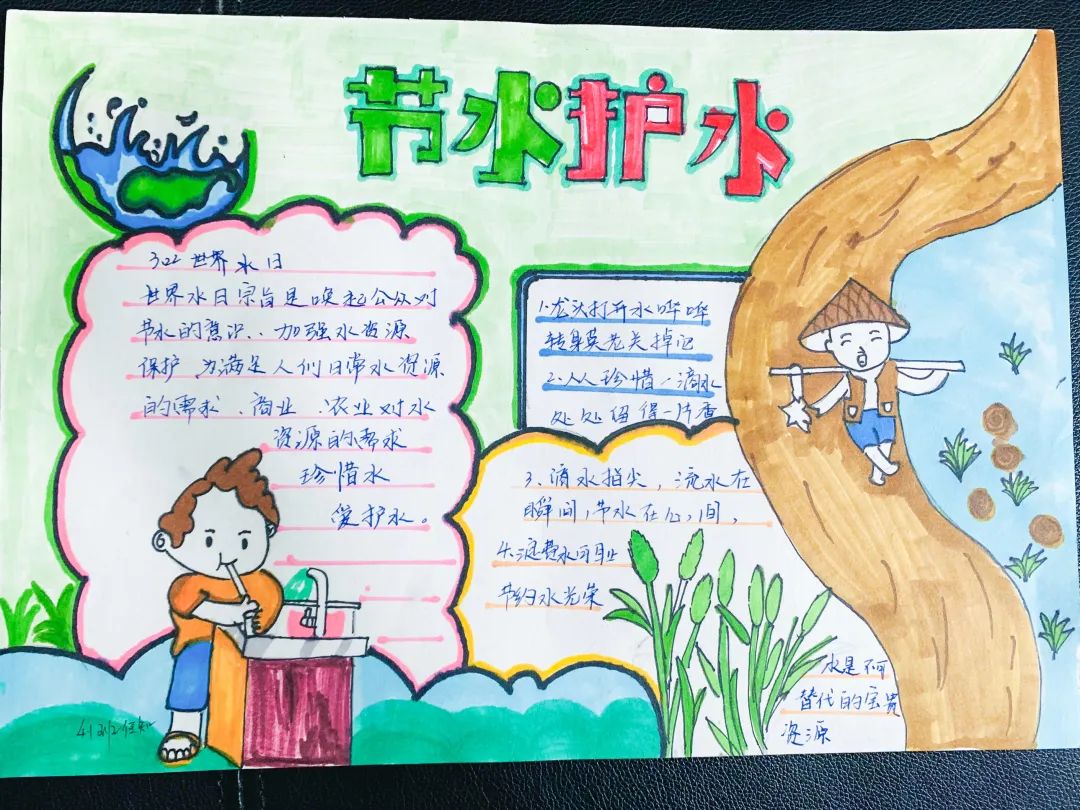 节水护水
322 世界水日
世界水日宗旨是唤起公众对
节水的意识、加强水资源
保护,为满足人们日常水资源
的需求、商业、农业对水
资源的需求
珍惜水
爱护水。
1.龙头打开水哗哗
转身莫忘关掉它
2.人人珍惜一滴水
处处留得一片春
3、滴水指尖,流水在
瞬间,节水在心间,
4.浪费水可耻
节约水光荣
水是不可
替代的宝贵
资源